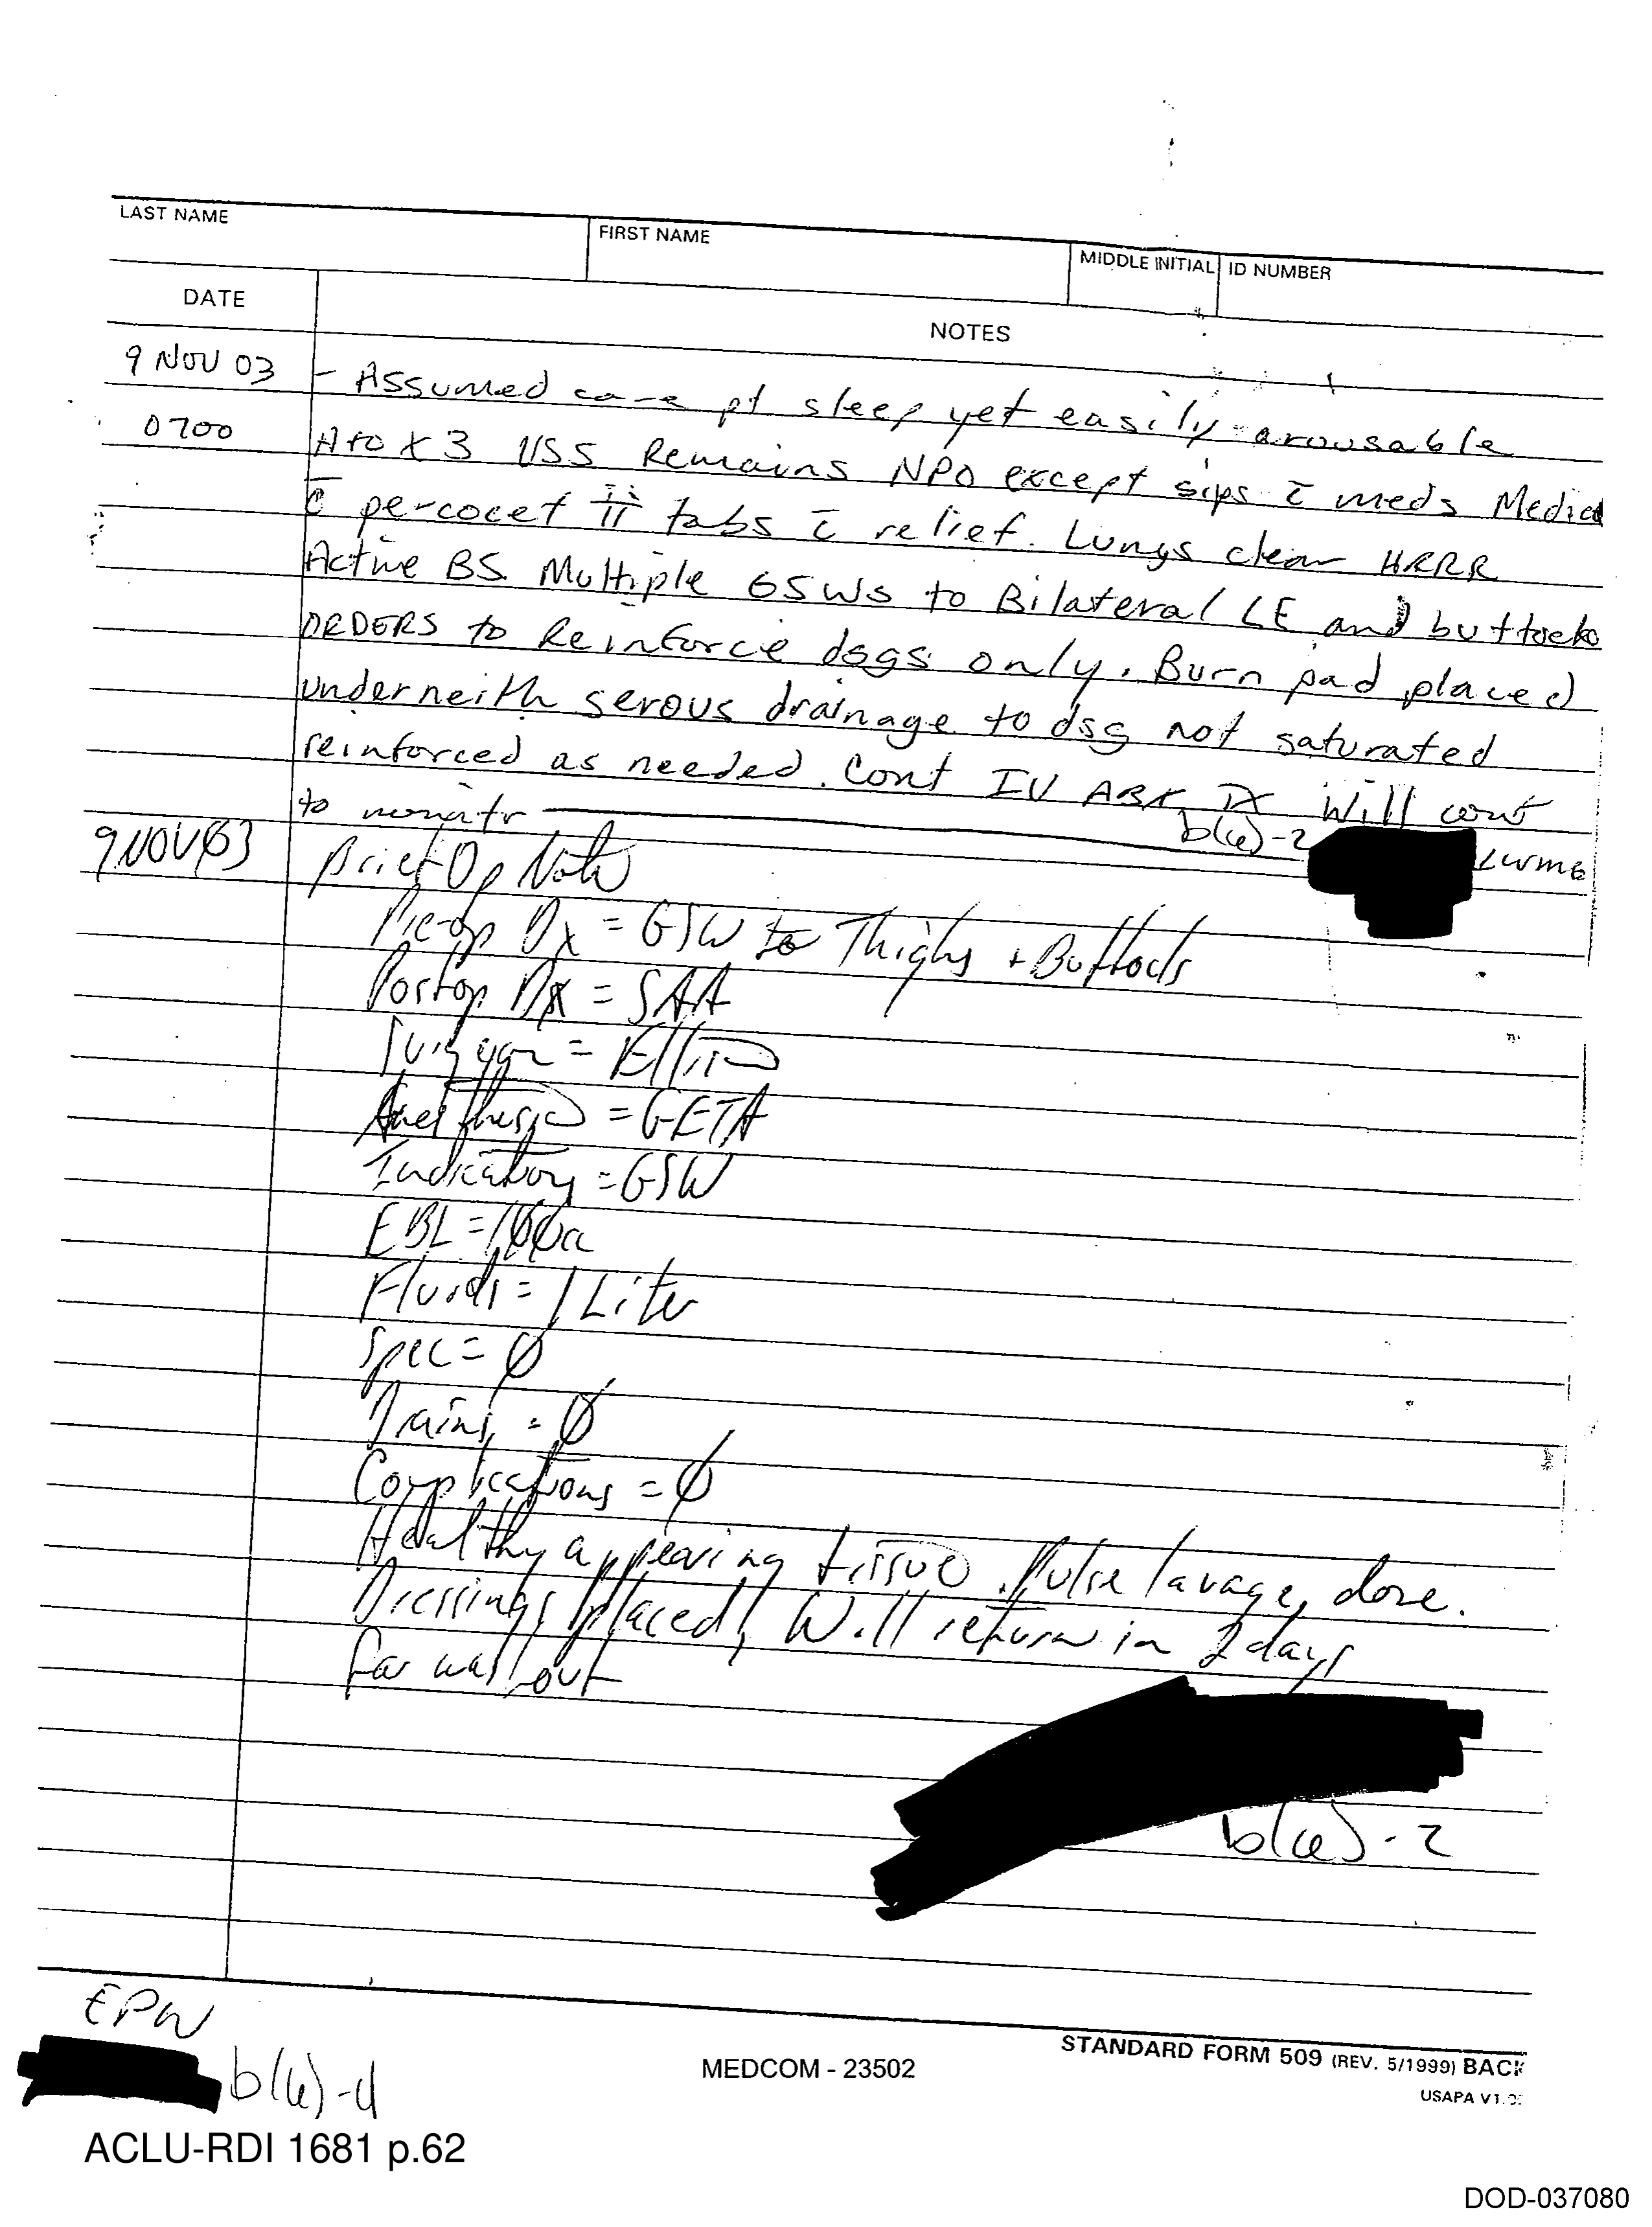 LAST NAME FIRST NAME MIDDLE INITIAL ID NUMBER
DATE NOTES
9 NOV 03 - Assumed care pt sleep yet easily arousable
0700 A+O x 3 VSS Remains NPO except sips c̄ meds Medicd
c̄ percocet ii tabs c̄ relief. Lungs clear HRRR
Active BS. Multiple GSWs to Bilateral LE and buttocks
ORDERS to Reinforce dsgs only. Burn pad placed
underneith serous drainage to dsg not saturated
reinforced as needed. Cont IV ABX Tx Will cont
to monitr
b(6)-2
9 NOV 03 Brief Op Note
Pre-op Dx = GSW to Thighs + Buttocks
Postop Dx = SAA
Surgeon =
Anesthesia = GETA
Indications = GSW
EBL = 100cc
Fluids = 1 Liter
Spec = Ø
Drains = Ø
Complications = Ø
Healthy appearing tissue. Pulse lavage, done.
Dressings placed, Will return in 2 days
for washout
b(6)-2
EPW
b(6)-4
MEDCOM - 23502
STANDARD FORM 509 (REV. 5/1999) BACK
USAPA
ACLU-RDI 1681 p.62
DOD-037080